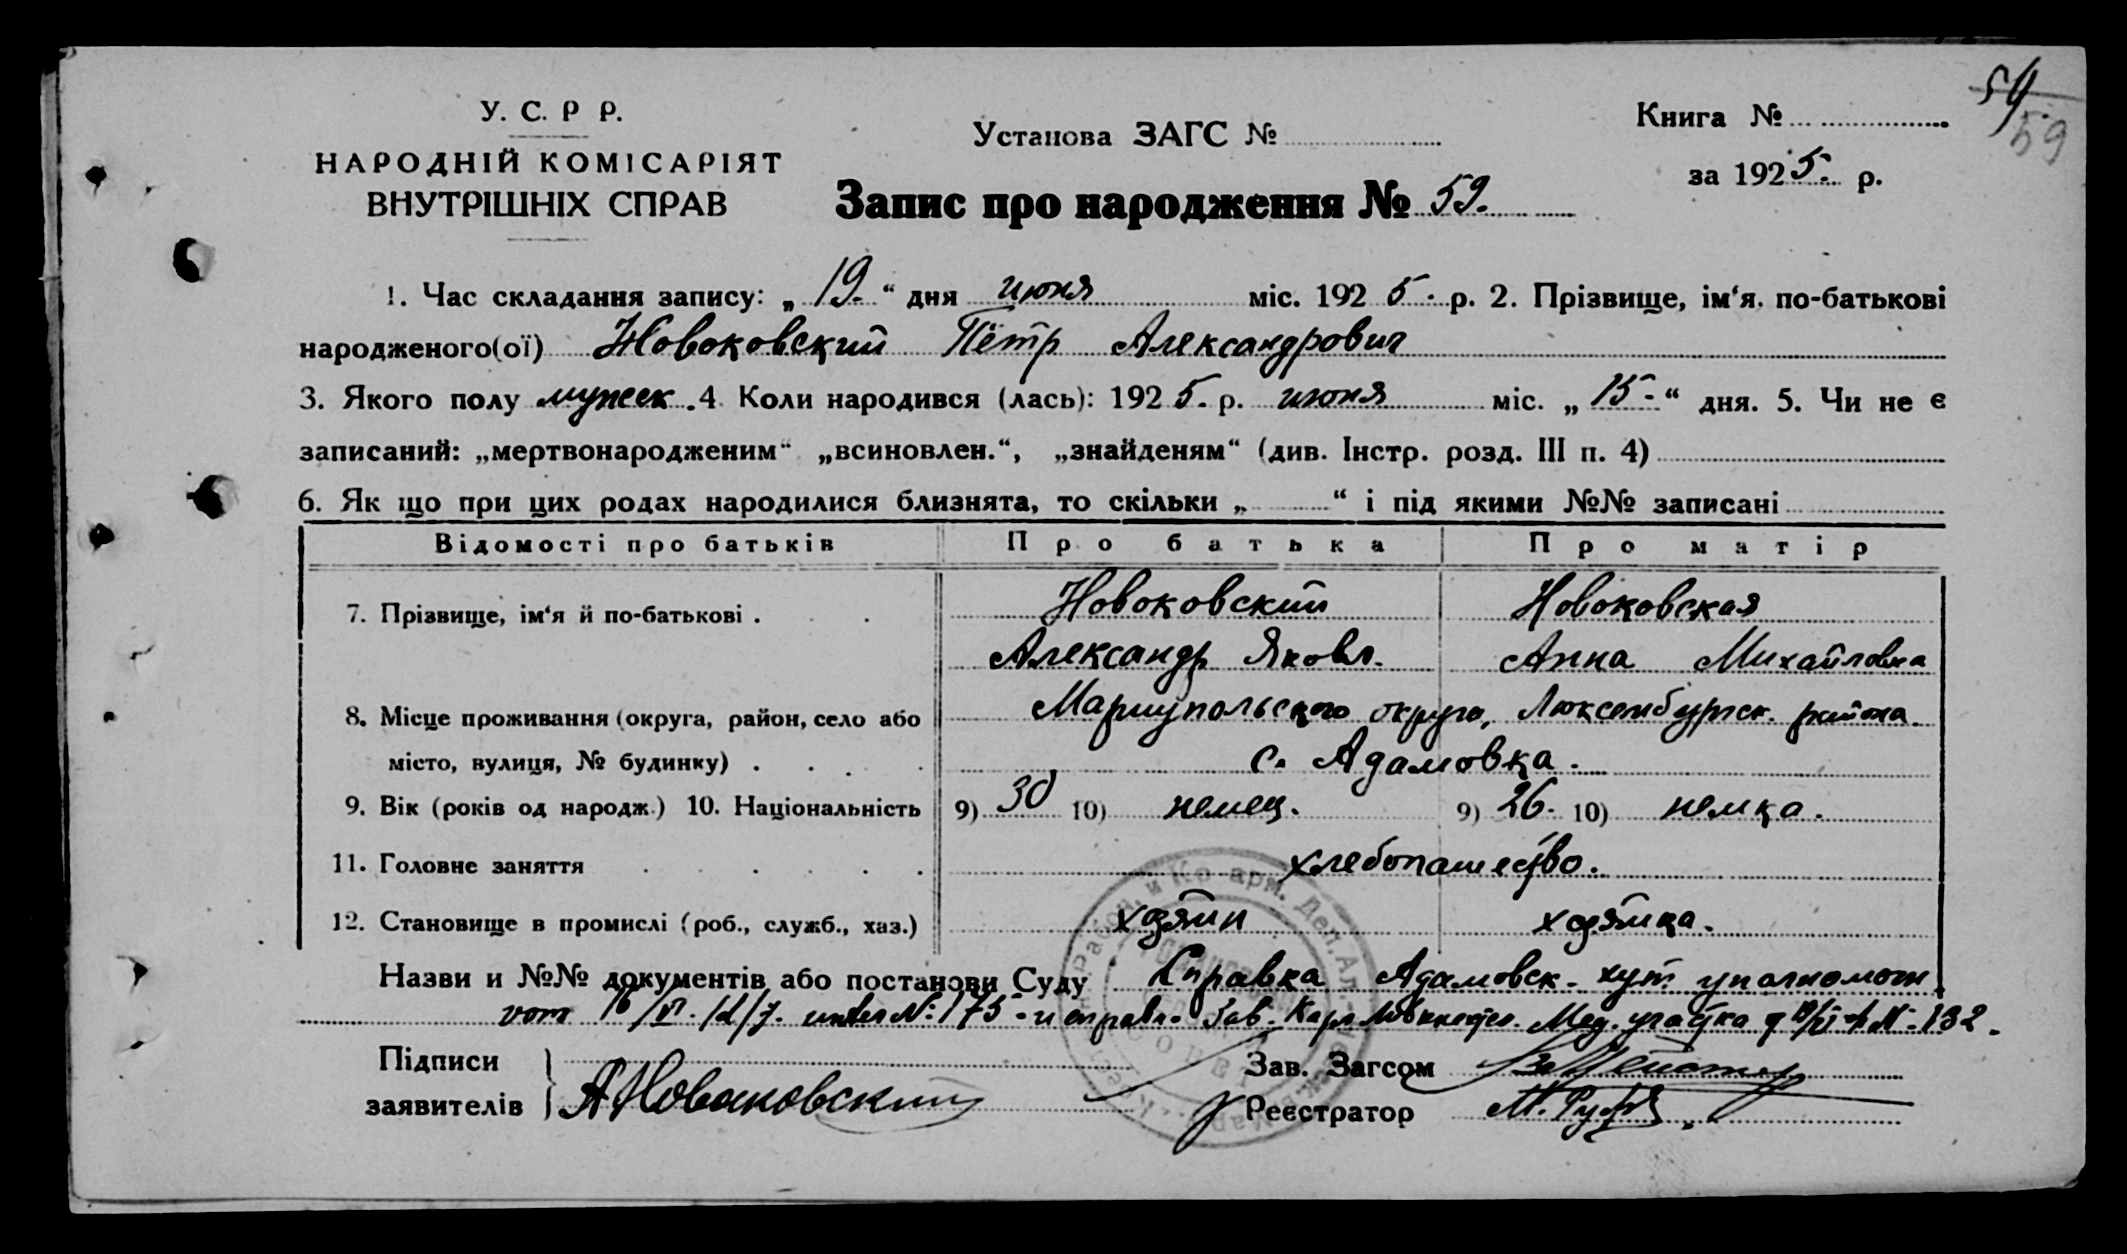 54
59
У. С. Р Р.
НАРОДНІЙ КОМІСАРІЯТ
ВНУТРІШНІХ СПРАВ
Установа ЗАГС №
Книга №
за 1925. р.
Запис про народження № 59.
1. Час складання запису: „ 19. “ дня июня міс. 192 5. р. 2. Прізвище, ім‘я, по-батькові
народженого(ої) Новоковский Пётр Александрович
3. Якого полу мужеск. 4. Коли народився (лась): 192 5. р. июня міс. „ 15 “ дня. 5. Чи не є
записаний: „мертвонародженим“ „всиновлен.“, „знайденям“ (див. Інстр. розд. III п. 4)
6. Як що при цих родах народилися близнята, то скільки „ “ і під якими №№ записані
Відомості про батьків Про батька Про матір
7. Прізвище, ім‘я й по-батькові . Новоковский Новоковская
Александр Яковл. Анна Михайловна
8. Місце проживання (округа, район, село або Мариупольского округа, Люксембургск. района
місто, вулиця, № будинку) . с. Адамовка.
9. Вік (років од народж.) 10. Національність 9) 30 10) немец. 9) 26. 10) немка.
11. Головне заняття хлебопашество.
12. Становище в промислі (роб., служб., хаз.) хозяин хозяйка.
Назви и №№ документів або постанови Суду Справка Адамовск. хут. уполномоч
vom 16/VI. unter №. 175 - и справк. Зав. Мед. участка № 132.
Підписи
заявителів АНоваковский
Зав. Загсом
Реєстратор М.